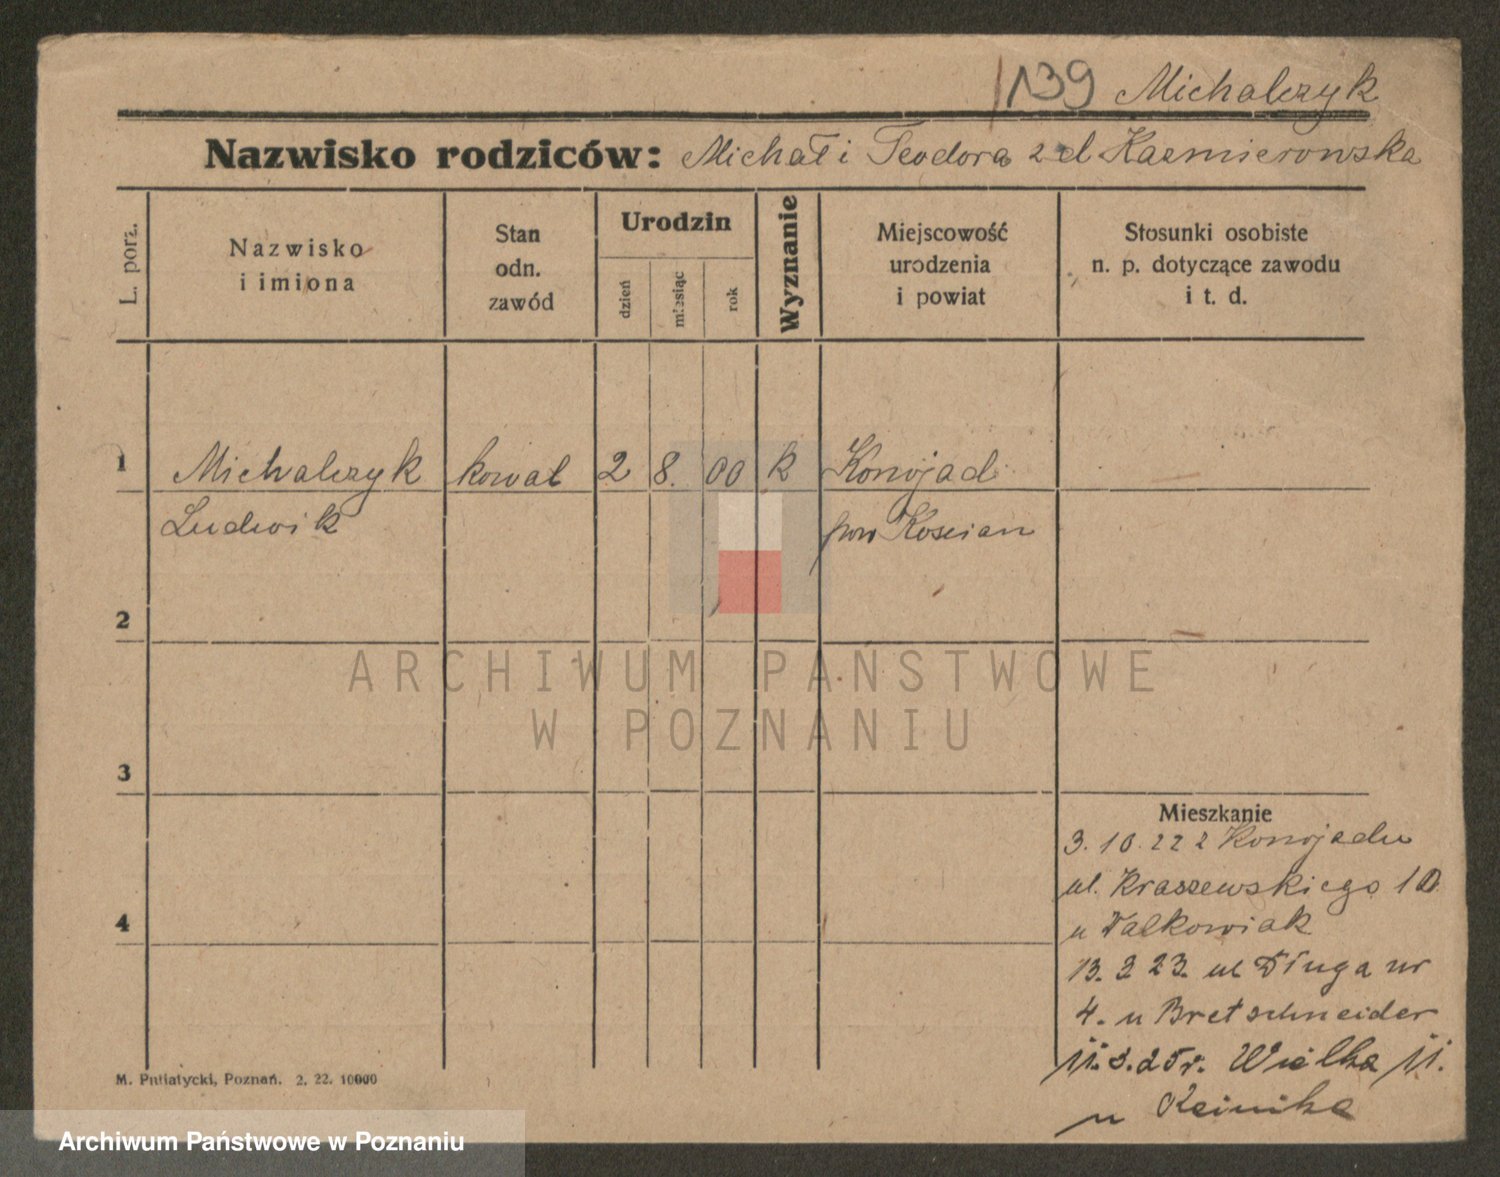 139 Michalczyk
Nazwisko rodziców: Michał i Teodora z d Kazmierowska
L. porz.
Nazwisko
i imiona
Stan
odn.
zawód
Urodzin
dzień
miesiąc
rok
Wyznanie
Miejscowość
urodzenia
i powiat
Stosunki osobiste
n. p. dotyczące zawodu
i t. d.
1 Michalczyk kowal 2 8. 00 k Konojad
Ludwik pow Koscian
2
ARCHIWUM PAŃSTWOWE
W POZNANIU
3
Mieszkanie
3. 10. 22 z Konojadu
ul. Kraszewskiego 10
4
u Walkowiak
13. 2 23. ul Długa nr
4. u Bretschneider
11. 3. 25 r. Wielka 11.
u
M. Putiatycki, Poznań. 2. 22. 10000
Archiwum Państwowe w Poznaniu